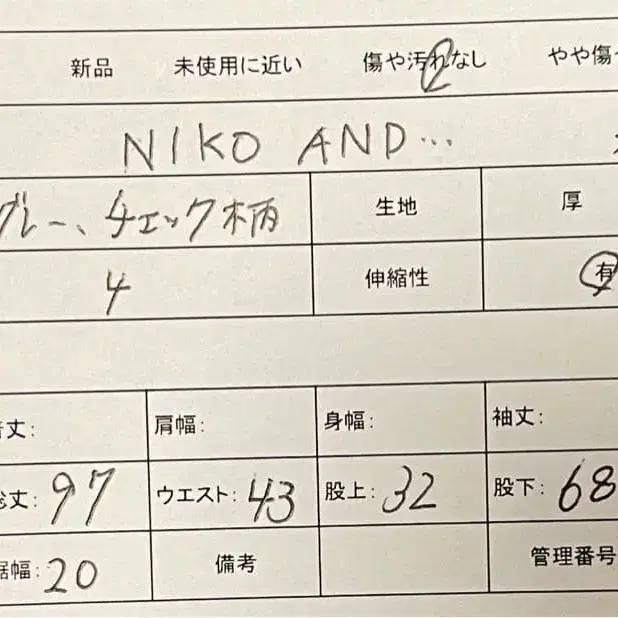 新品 未使用に近い 傷や汚れなし やや傷
NIKO AND...
グレー、チェック柄 生地 厚
4 伸縮性 有
着丈: 肩幅: 身幅: 袖丈:
総丈: 97 ウエスト: 43 股上: 32 股下: 68
裾幅: 20 備考 管理番号